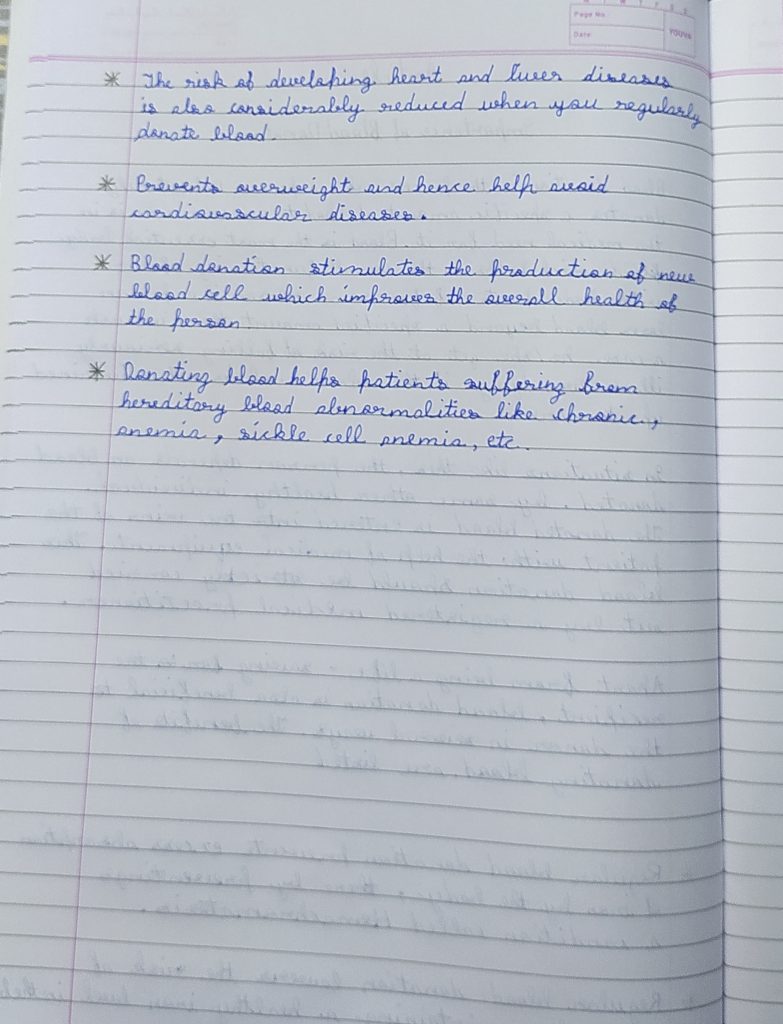 Page No.
Date
YOUVA
* The risk of developing heart and liver diseases
is also considerably reduced when you regularly
donate blood.
* Prevents overweight and hence help avoid
cardiovascular diseases.
* Blood donation stimulates the production of new
blood cell which improves the overall health of
the person
* Donating blood helps patients suffering from
hereditary blood abnormalities like chronic,
anemia, sickle cell anemia, etc.